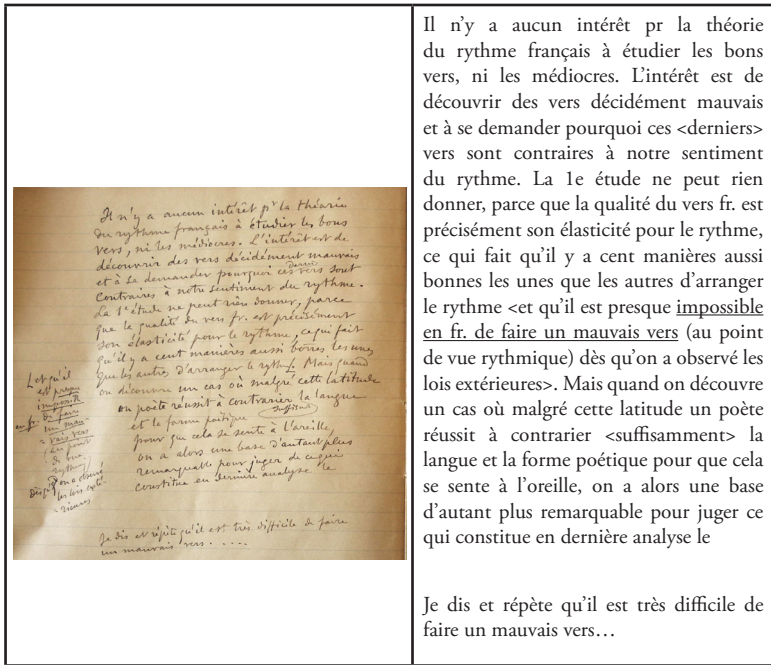 Il n'y a aucun intérêt pr la théorie
du rythme français à étudier les bons
vers, ni les médiocres. L'intérêt est de
découvrir des vers décidément mauvais
derniers
et à se demander pourquoi ces vers sont
contraires à notre sentiment du rythme.
La 1e étude ne peut rien donner, parce
que la qualité du vers fr. est précisément
son élasticité pour le rythme, ce qui fait
qu'il y a cent manières aussi bonnes les unes
que les autres d'arranger le rythme. Mais quand
on découvre un cas où malgré cette latitude
un poète réussit à contrarier la langue
suffisamt
et la forme poétique
pour que cela se sente à l'oreille,
on a alors une base d'autant plus
remarquable pour juger de ce qui
constitue en dernière analyse le
et qu'il
est presque
impossible
en fr. de faire
un mau-
vais vers
(au point
de vue
rythmique)
dès qu'on a observé
les lois exté-
rieures.
Je dis et répète qu'il est très difficile de faire
un mauvais vers.....
Il n'y a aucun intérêt pr la théorie
du rythme français à étudier les bons
vers, ni les médiocres. L'intérêt est de
découvrir des vers décidément mauvais
et à se demander pourquoi ces <derniers>
vers sont contraires à notre sentiment
du rythme. La 1e étude ne peut rien
donner, parce que la qualité du vers fr. est
précisément son élasticité pour le rythme,
ce qui fait qu'il y a cent manières aussi
bonnes les unes que les autres d'arranger
le rythme <et qu'il est presque impossible
en fr. de faire un mauvais vers (au point
de vue rythmique) dès qu'on a observé les
lois extérieures>. Mais quand on découvre
un cas où malgré cette latitude un poète
réussit à contrarier <suffisamment> la
langue et la forme poétique pour que cela
se sente à l'oreille, on a alors une base
d'autant plus remarquable pour juger ce
qui constitue en dernière analyse le
Je dis et répète qu'il est très difficile de
faire un mauvais vers…